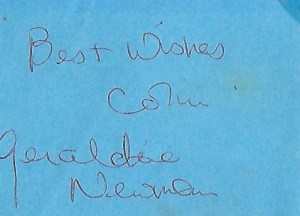 Best Wishes
Colin
Geraldine
Newman